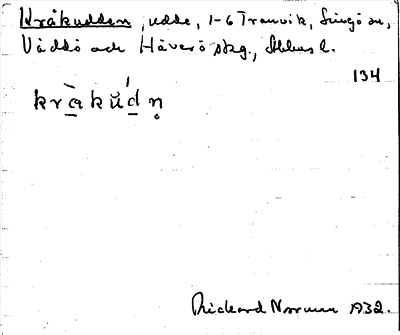 Kråkudden, udde, 1-6 Tranvik, Singö sn,
Väddö och Häverö skg., Sthlms l.
134
kràkŭ́dn̥
Rickard Norman 1932.